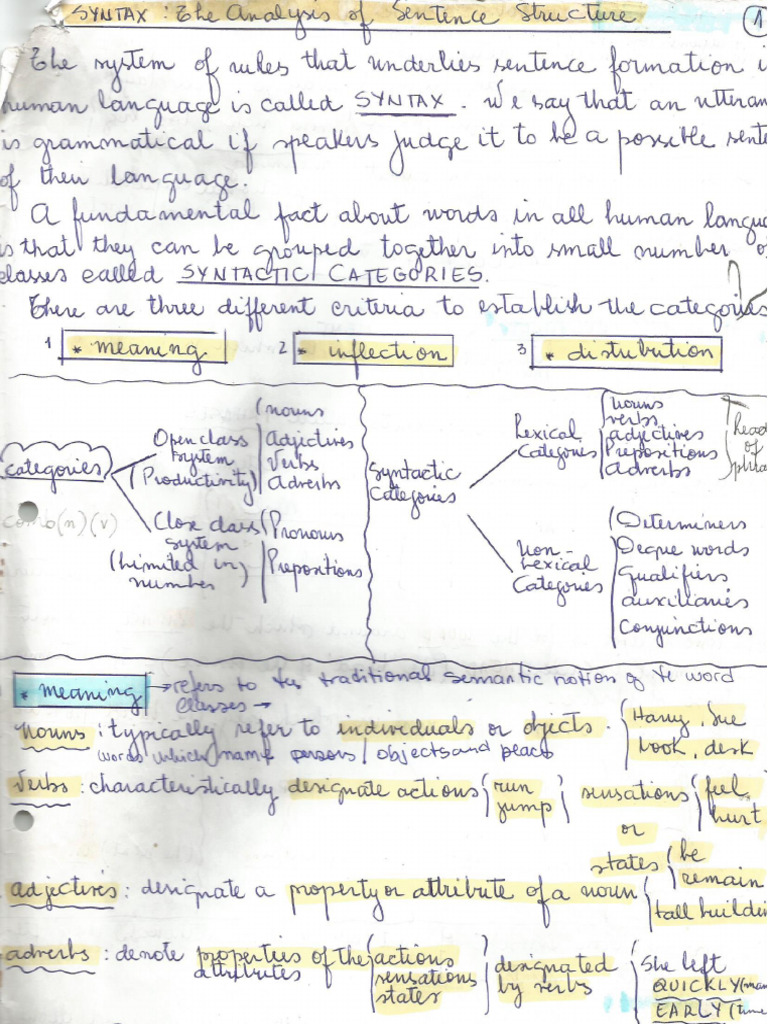 SYNTAX : The Analysis of Sentence Structure
1
The system of rules that underlies sentence formation i
human language is called SYNTAX. We say that an utteran
is grammatical if speakers judge it to be a possible sente
of their language.
A fundamental fact about words in all human langua
is that they can be grouped together into small number of
classes called SYNTACTIC CATEGORIES.
There are three different criteria to establish the categories
1 * meaning 2 * inflection 3 * distribution
categories
Open class system (Productivity)
nouns
Adjectives
Verbs
Adverbs
Close class system (Limited in number)
Pronouns
Prepositions
comb(n)(v)
Syntactic Categories
Lexical Categories
Nouns
verbs
adjectives
Prepositions
adverbs
head
of
phra
Non-Lexical Categories
Determiners
Degree words
Qualifiers
auxiliaries
Conjunctions
* meaning → refers to the traditional semantic notion of te word
classes →
nouns : typically refer to individuals or objects. Harry, Sue
words which name persons / objects and places book, desk
Verbs : characteristically designate actions run jump sensations feel, hurt
or
states be remain
adjectives : designate a property or attribute of a noun tall buildin
adverbs : denote properties of the actions designated She left
attributes sensations by verbs QUICKLY (man
states EARLY (time